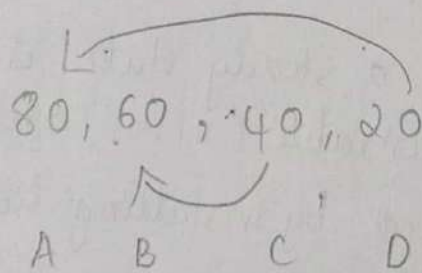 80, 60, 40, 20
A B C D